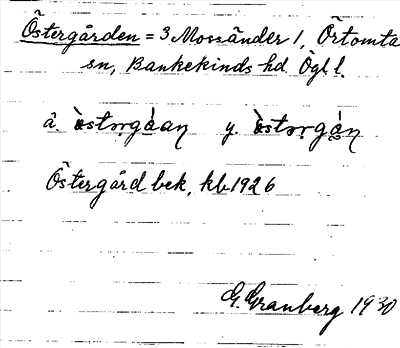 Östergården = 3 Mossänder 1, Örtomta
sn, Bankekinds hd. Ögl l.
ä. östorgåan y. östorgån
Östergård bek, kb 1926
G. Granberg 1930